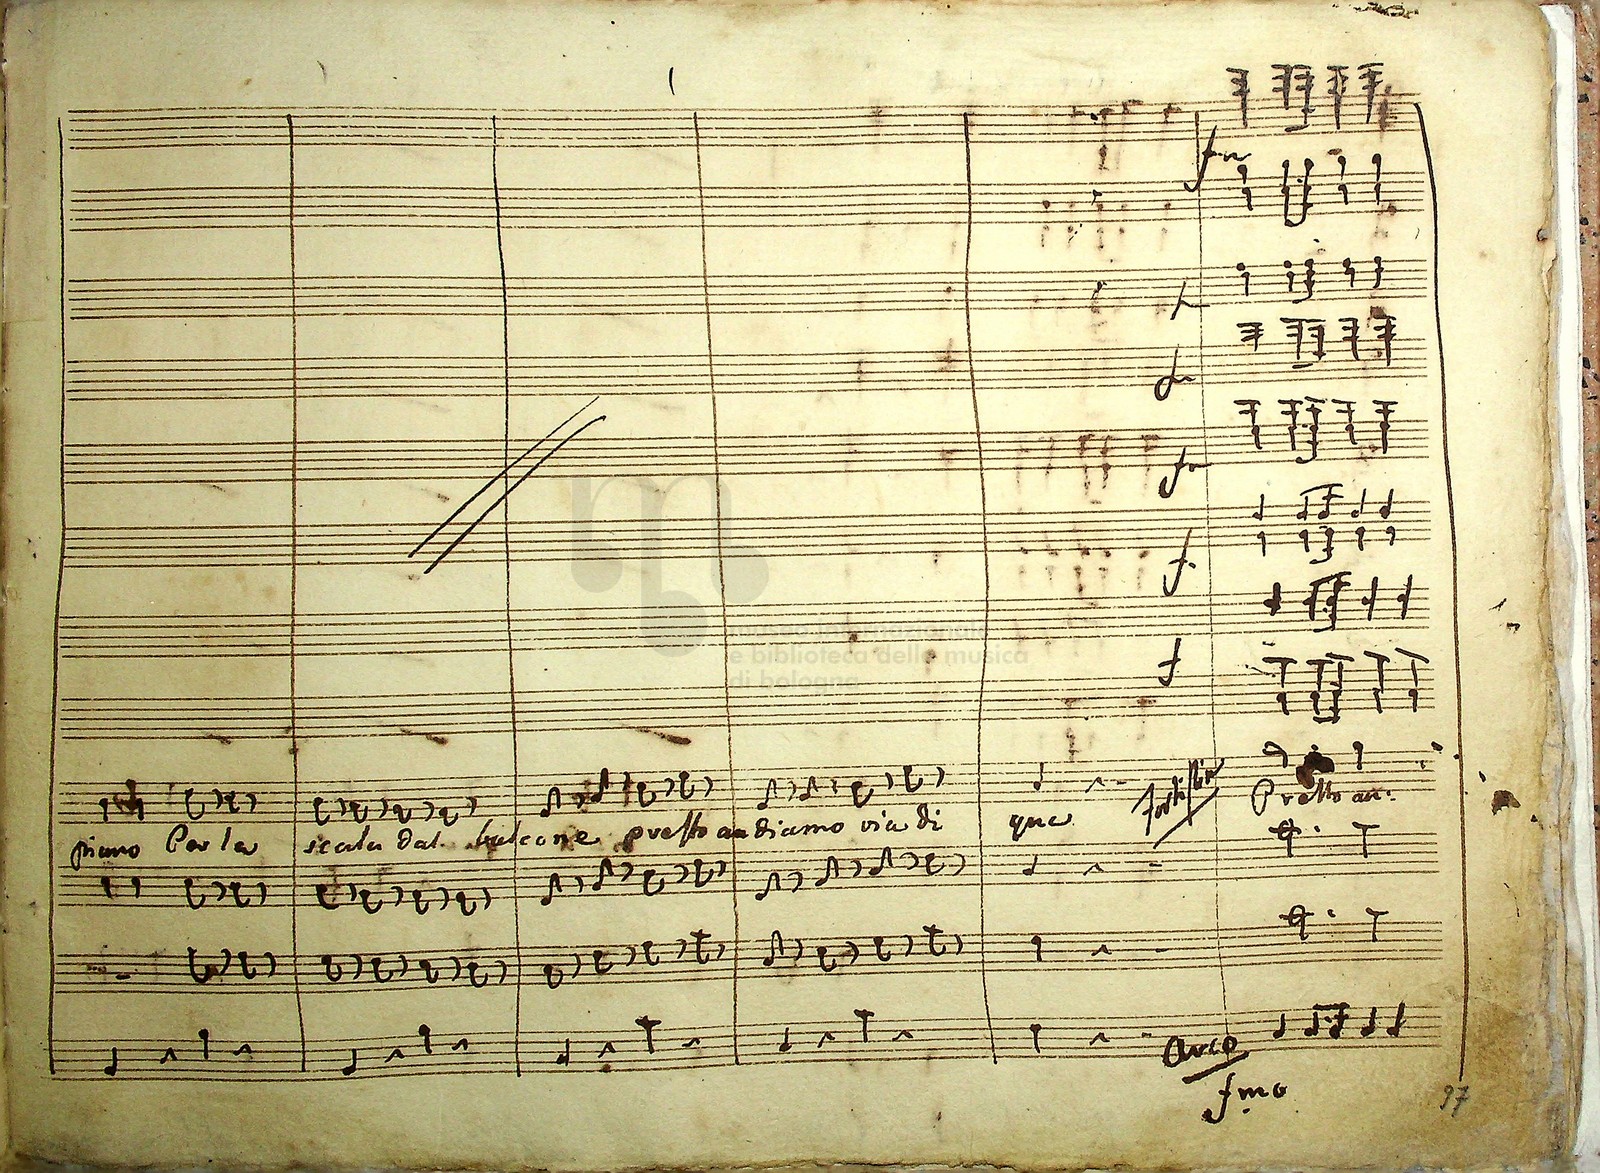 fmo
f
f
museo internazionale
e biblioteca della musica
di bologna
fortissimo
piano Per la scala dal balcone presto andiamo via di qua Presto an:
Arco
fmo
97